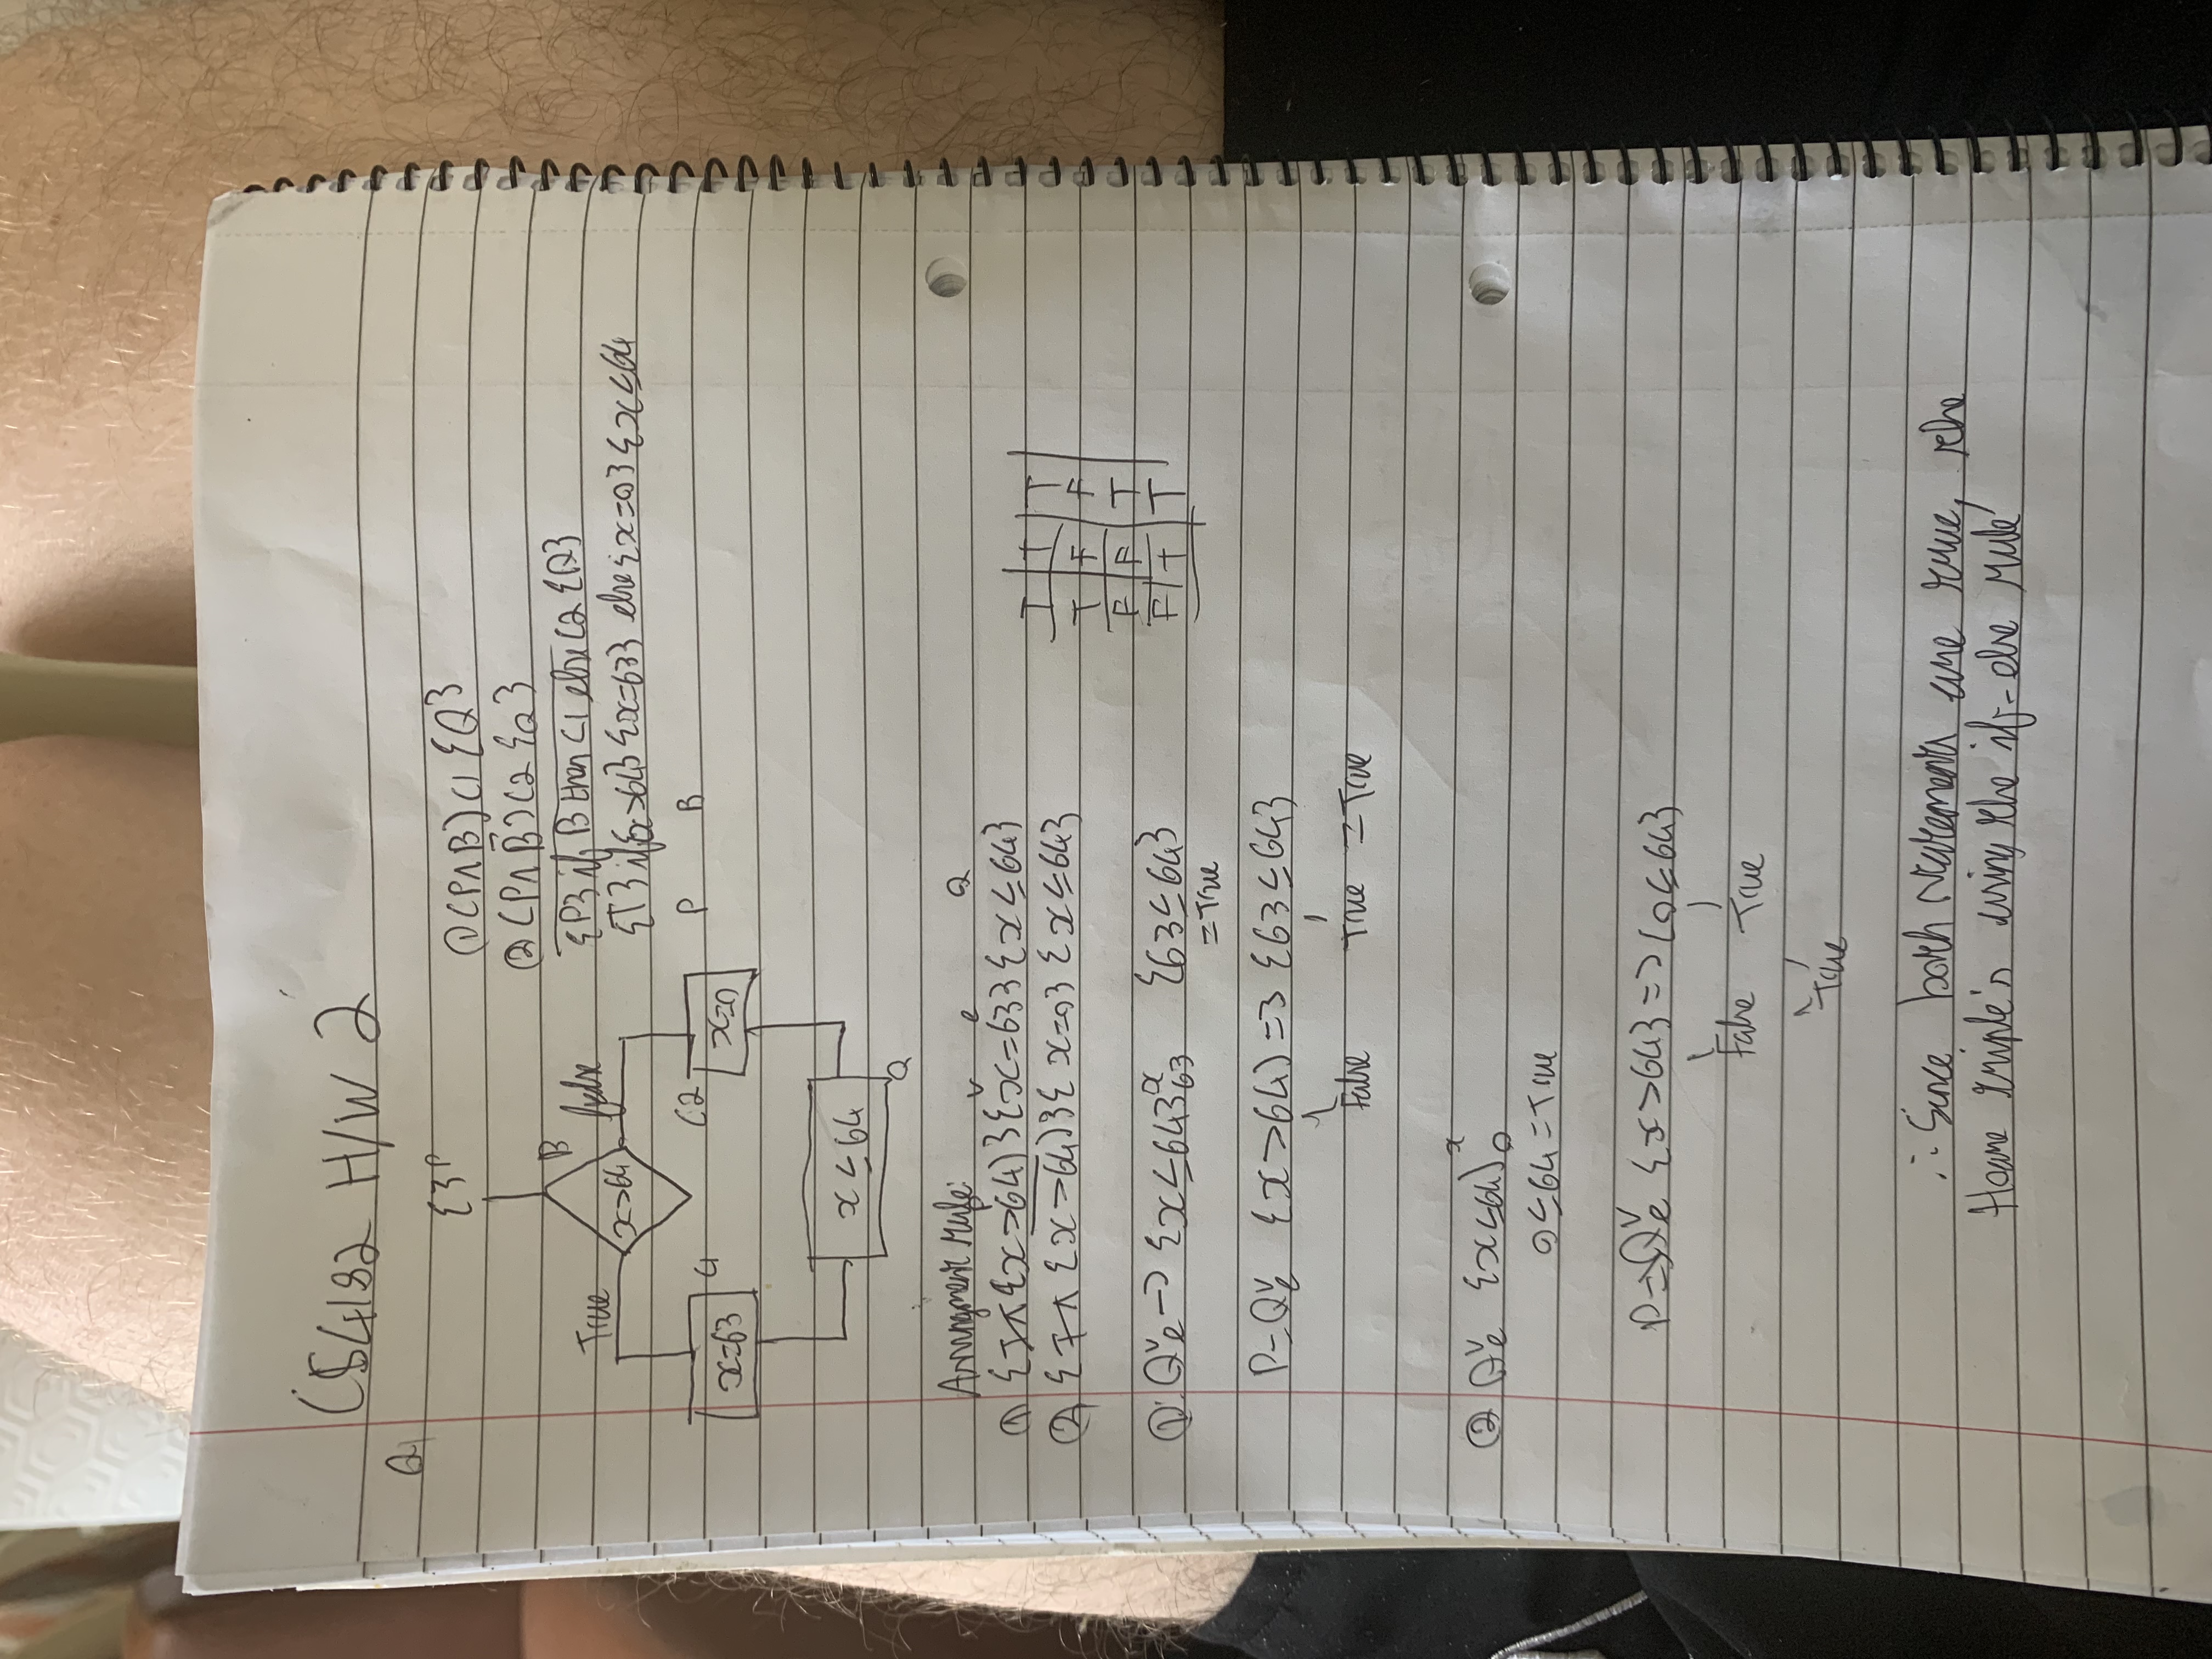 CS4182 H/W 2
Q1
{}P
B
True
False
x>64
C1
x=63
C2
x=0
x ≤ 64
Q
① (P∧B) C1 {Q}
② (P∧B̄) C2 {Q}
{P} if B then C1 else C2 {Q}
{T} if {x>64} {x=63} else {x=0} {x≤64
P B
Assignment rule:
v e Q
① {T∧{x>64)}{x=63} {x≤64}
② {T∧ {x>64)}{x=0} {x≤64}
T T T
T F F
F F T
F T T
①: Qᵛₑ -> {x≤64}ˣ₆₃ {63≤64}
=True
P=Qᵛₑ {x>64) => {63≤64}
False True = True
② Qᵛₑ {x≤64)ˣ₀
0≤64 = True
P=>Qᵛₑ {x>64} => (0≤64}
False True
True
∴ Since both statements are true, the
Hoare triple's using the if-else rule